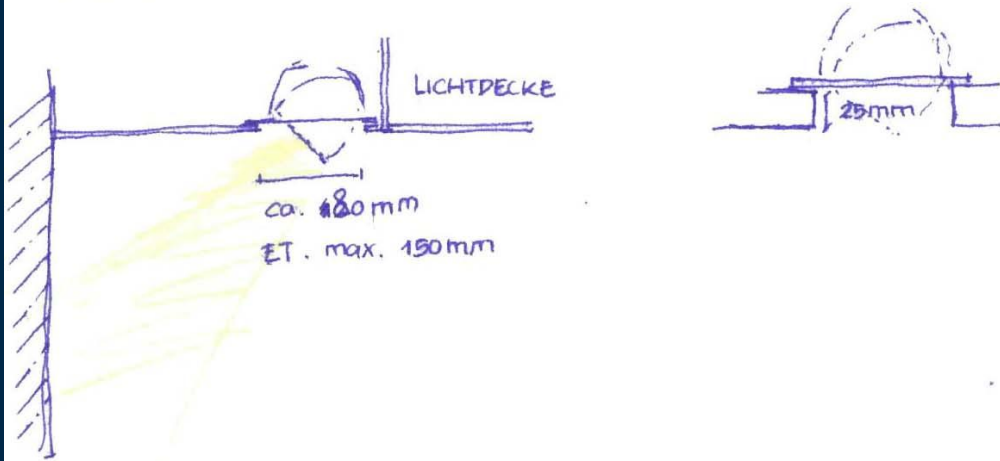 LICHTDECKE
25mm
ca. 180mm
ET. max. 150mm